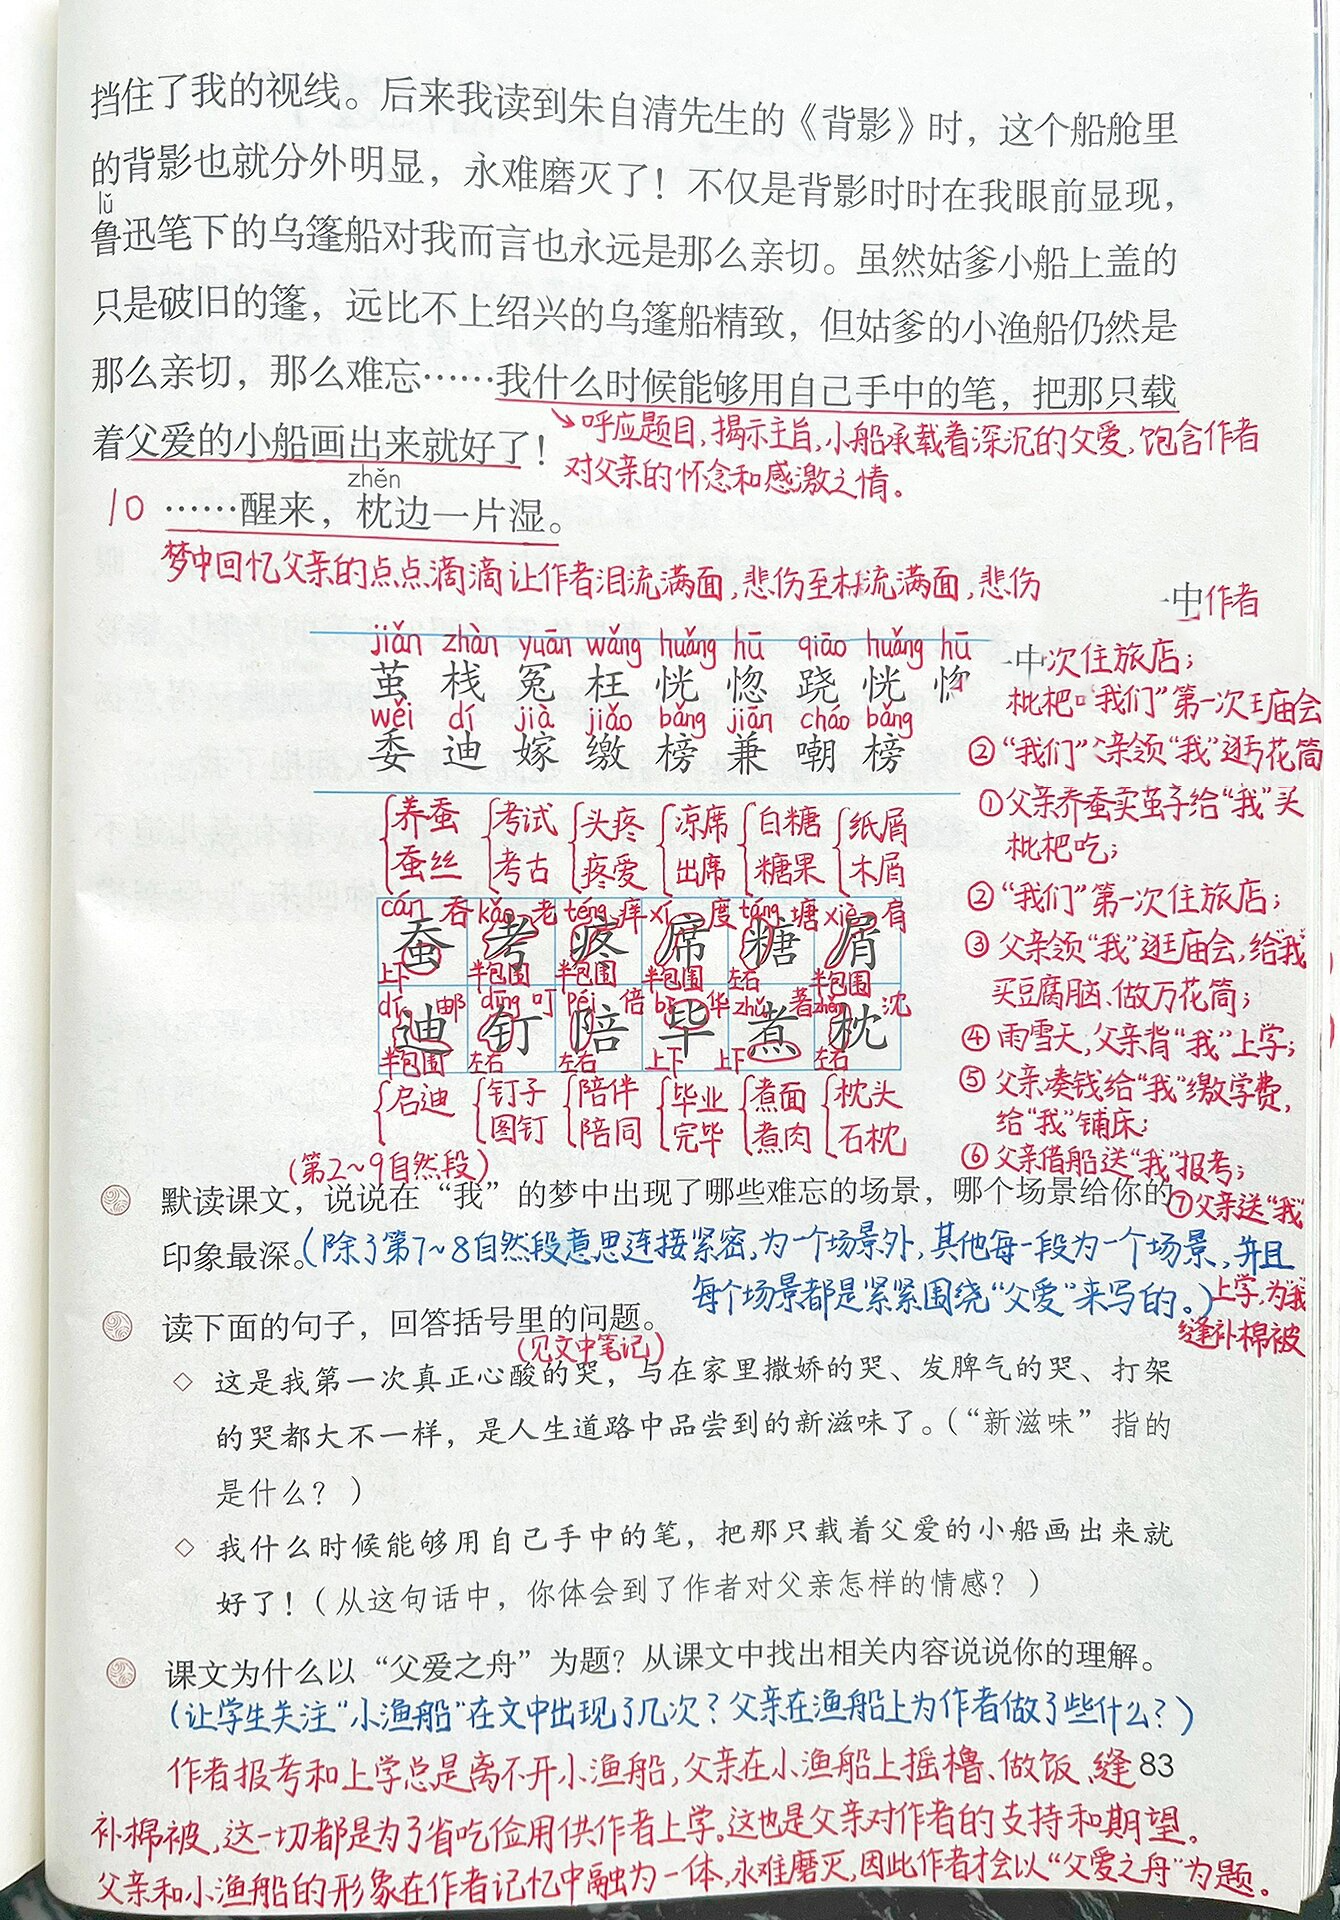 挡住了我的视线。后来我读到朱自清先生的《背影》时，这个船舱里
的背影也就分外明显，永难磨灭了！不仅是背影时时在我眼前显现，
lǔ
鲁迅笔下的乌篷船对我而言也永远是那么亲切。虽然姑爹小船上盖的
只是破旧的篷，远比不上绍兴的乌篷船精致，但姑爹的小渔船仍然是
那么亲切，那么难忘……我什么时候能够用自己手中的笔，把那只载
着父爱的小船画出来就好了！
呼应题目，揭示主旨，小船承载着深沉的父爱，饱含作者
对父亲的怀念和感激之情。
zhěn
10 ……醒来，枕边一片湿。
梦中回忆父亲的点点滴滴让作者泪流满面，悲伤至流满面，悲伤
中作者
jiǎn zhàn yuān wǎng huǎng hū qiāo huǎng hū
茧 栈 冤 枉 恍 惚 跷 恍 惚
wěi dí jià jiǎo bǎng jiān cháo bǎng
委 迪 嫁 缴 榜 兼 嘲 榜
中次住旅店；
枇杷“我们”第一次庙会
②“我们”亲领“我”逛万花筒
①父亲养蚕卖茧子给“我”买
枇杷吃；
②“我们”第一次住旅店；
③父亲领“我”逛庙会，给“我”
买豆腐脑、做万花筒；
④雨雪天，父亲背“我”上学；
⑤父亲凑钱给“我”缴学费，
给“我”铺床；
⑥父亲借船送“我”报考；
⑦父亲送“我”
上学，为“我”
缝补棉被
养蚕 考试 头疼 凉席 白糖 纸屑
蚕丝 考古 疼爱 出席 糖果 木屑
cán 吞 kǎo 老 téng 痒 xí 度 táng 塘 xiè 肩
蚕 考 疼 席 糖 屑
上下 半包围 半包围 半包围 左右 半包围
dí 邮 dīng 叮 péi 倍 bì 华 zhǔ 著 zhěn 沈
迪 钉 陪 毕 煮 枕
半包围 左右 左右 上下 上下 左右
启迪 钉子 陪伴 毕业 煮面 枕头
图钉 陪同 完毕 煮肉 石枕
（第2~9自然段）
默读课文，说说在“我”的梦中出现了哪些难忘的场景，哪个场景给你的
印象最深。
（除了第7~8自然段意思连接紧密，为一个场景外，其他每一段为一个场景，并且
每个场景都是紧紧围绕“父爱”来写的。）
读下面的句子，回答括号里的问题。
（见文中笔记）
◇ 这是我第一次真正心酸的哭，与在家里撒娇的哭、发脾气的哭、打架
的哭都大不一样，是人生道路中品尝到的新滋味了。（“新滋味”指的
是什么？）
◇ 我什么时候能够用自己手中的笔，把那只载着父爱的小船画出来就
好了！（从这句话中，你体会到了作者对父亲怎样的情感？）
课文为什么以“父爱之舟”为题？从课文中找出相关内容说说你的理解。
（让学生关注“小渔船”在文中出现了几次？父亲在渔船上为作者做了些什么？）
作者报考和上学总是离不开小渔船，父亲在小渔船上摇橹、做饭、缝
83
补棉被，这一切都是为了省吃俭用供作者上学。这也是父亲对作者的支持和期望。
父亲和小渔船的形象在作者记忆中融为一体，永难磨灭，因此作者才会以“父爱之舟”为题。